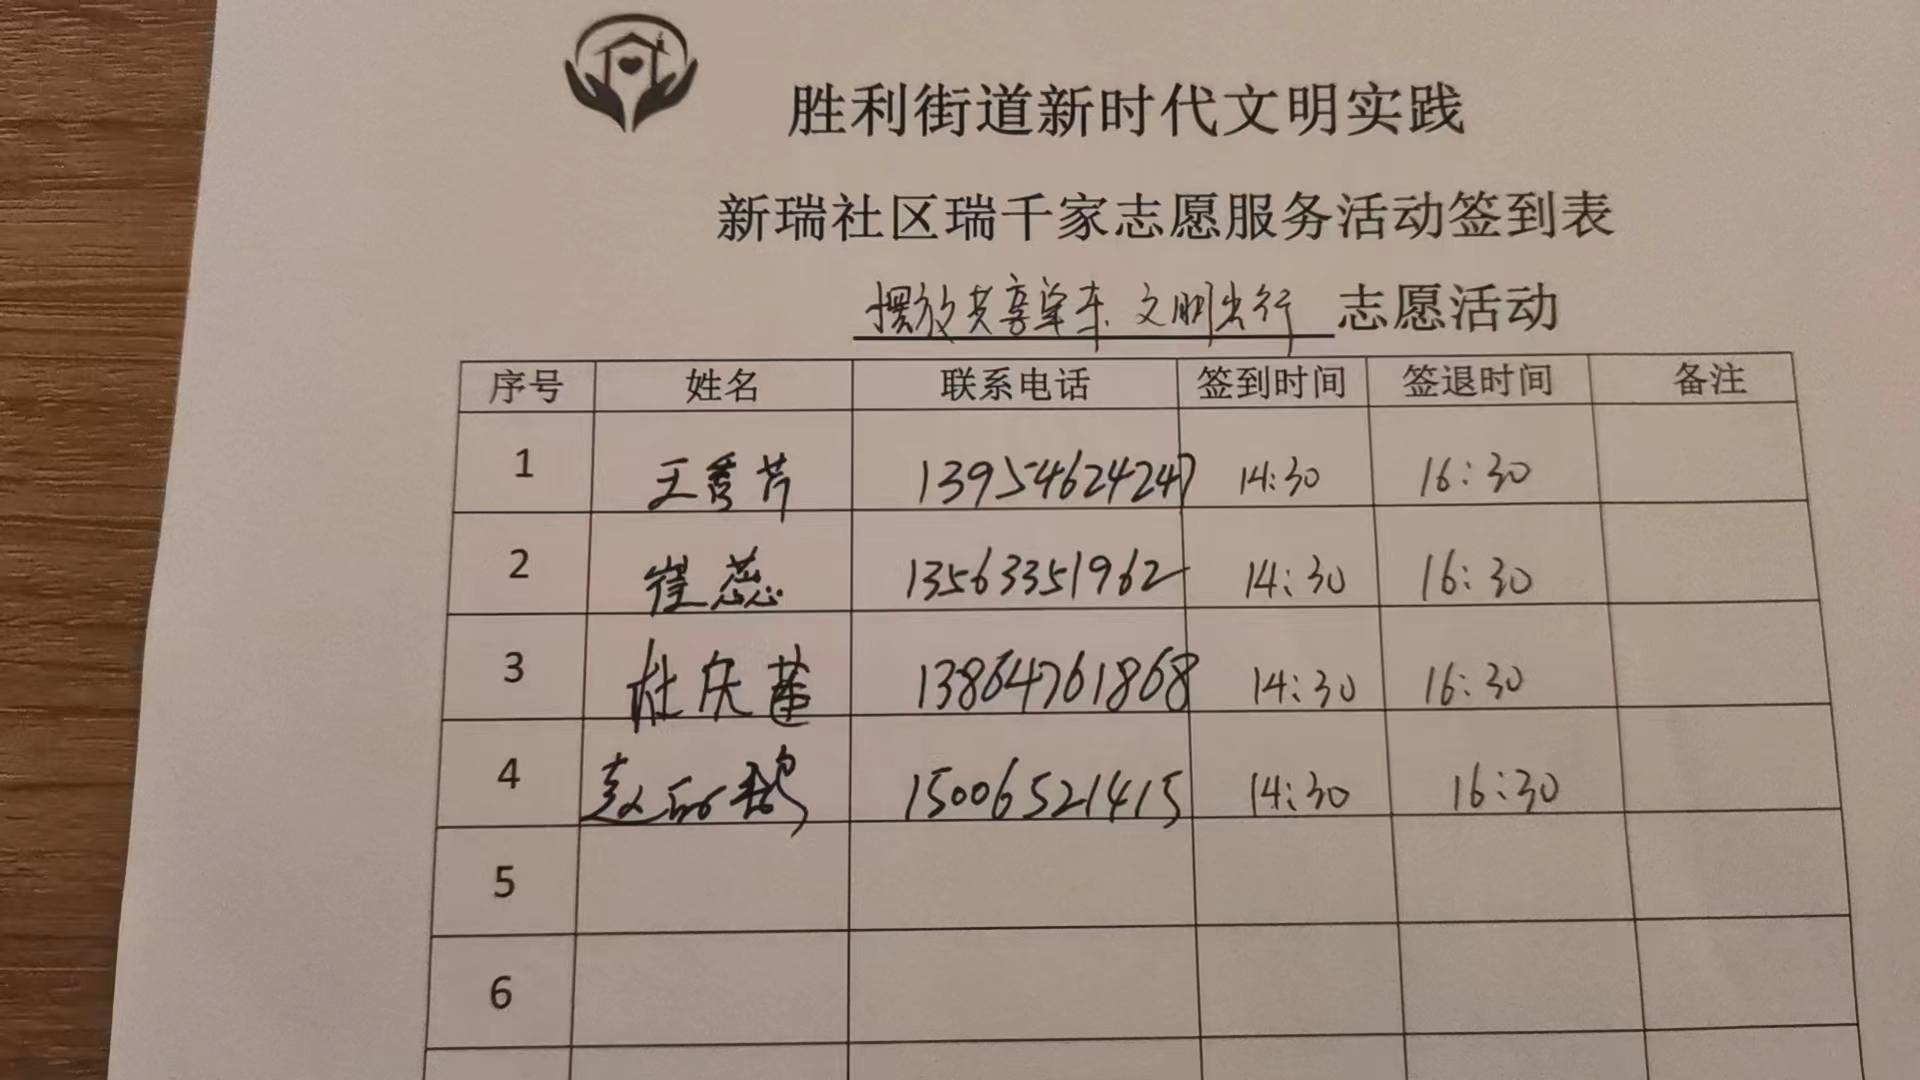 胜利街道新时代文明实践
新瑞社区瑞千家志愿服务活动签到表
摆放共享单车 文明出行 志愿活动
序号 姓名 联系电话 签到时间 签退时间 备注
1 王秀芹 13954624247 14:30 16:30
2 崔蕊 13563351962 14:30 16:30
3 杜庆莲 13864761868 14:30 16:30
4 赵 15006521415 14:30 16:30
5
6